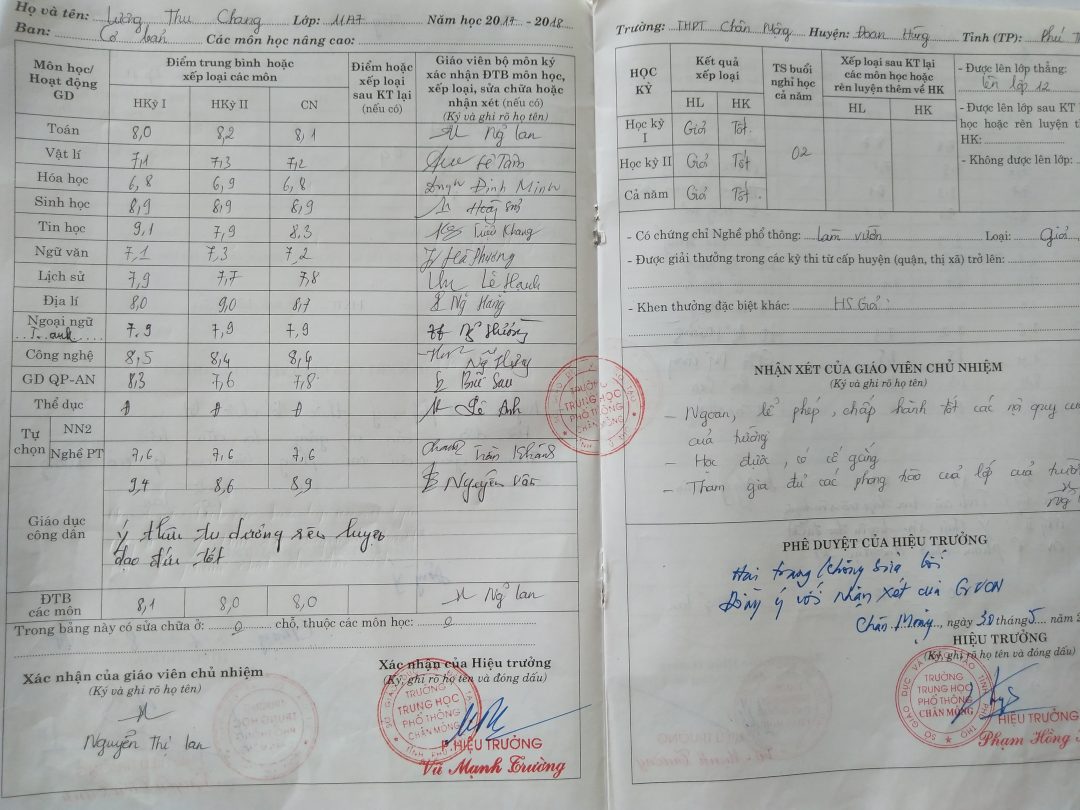 Họ và tên: Lương Thu Chang Lớp: 11A7 Năm học 2017 - 2018
Ban: Cơ bản Các môn học nâng cao:
Môn học/ Hoạt động GD
Điểm trung bình hoặc xếp loại các môn
HKỳ I HKỳ II CN
Điểm hoặc xếp loại sau KT lại (nếu có)
Giáo viên bộ môn ký xác nhận ĐTB môn học, xếp loại, sửa chữa hoặc nhận xét (nếu có)
(Ký và ghi rõ họ tên)
Toán 8,0 8,2 8,1 Ng lan
Vật lí 7,1 7,3 7,2 Lê Tâm
Hóa học 6,8 6,9 6,8 Đinh Minh
Sinh học 8,9 8,9 8,9
Tin học 9,1 7,9 8,3 Khang
Ngữ văn 7,1 7,3 7,2 Hà Phương
Lịch sử 7,9 7,7 7,8 Lê Hạnh
Địa lí 8,0 9,0 8,7 Ng Hằng
Ngoại ngữ T. anh 7.9 7,9 7,9 Hường
Công nghệ 8,5 8,4 8,4
GD QP-AN 8,3 7,6 7,8
Thể dục Đ Đ Đ Lê Anh
Tự chọn NN2
Nghề PT 7,6 7,6 7,6 Trần Khánh
Giáo dục công dân 9,4 8,6 8,9 Nguyễn Vân
ý thức tu dưỡng rèn luyện
đạo đức tốt
ĐTB các môn 8,1 8,0 8,0 Ng lan
Trong bảng này có sửa chữa ở: 0 chỗ, thuộc các môn học: 0
Xác nhận của giáo viên chủ nhiệm
(Ký và ghi rõ họ tên)
Nguyễn Thị lan
Xác nhận của Hiệu trưởng
(Ký, ghi rõ họ tên và đóng dấu)
TRƯỜNG
TRUNG HỌC
PHỔ THÔNG
CHÂN MỘNG
P HIỆU TRƯỞNG
Vũ Mạnh Trường
Trường: THPT Chân Mộng Huyện: Đoan Hùng Tỉnh (TP): Phú
HỌC KỲ
Kết quả xếp loại
HL HK
TS buổi nghỉ học cả năm
Xếp loại sau KT lại các môn học hoặc rèn luyện thêm về HK
HL HK
Học kỳ I Giỏi Tốt
Học kỳ II Giỏi Tốt
Cả năm Giỏi Tốt
02
- Được lên lớp thẳng:
lên lớp 12
- Được lên lớp sau KT
học hoặc rèn luyện
HK:
- Không được lên lớp:
- Có chứng chỉ Nghề phổ thông: Làm vườn Loại: giỏi
- Được giải thưởng trong các kỳ thi từ cấp huyện (quận, thị xã) trở lên:
- Khen thưởng đặc biệt khác: HS Giỏi
NHẬN XÉT CỦA GIÁO VIÊN CHỦ NHIỆM
(Ký và ghi rõ họ tên)
- Ngoan, lễ phép, chấp hành tốt các nội quy
của trường
- Học được, có cố gắng
- Tham gia đủ các phong trào của lớp của trường
PHÊ DUYỆT CỦA HIỆU TRƯỞNG
Hai trang không sửa lỗi
Đồng ý với nhận xét của GVCN
Chân Mộng, ngày 30 tháng 5
HIỆU TRƯỞNG
(Ký, ghi rõ họ tên và đóng dấu)
TRƯỜNG
TRUNG HỌC
PHỔ THÔNG
CHÂN MỘNG
HIỆU TRƯỞNG
Phạm Hồng
TRƯỜNG
TRUNG HỌC
PHỔ THÔNG
CHÂN MỘNG